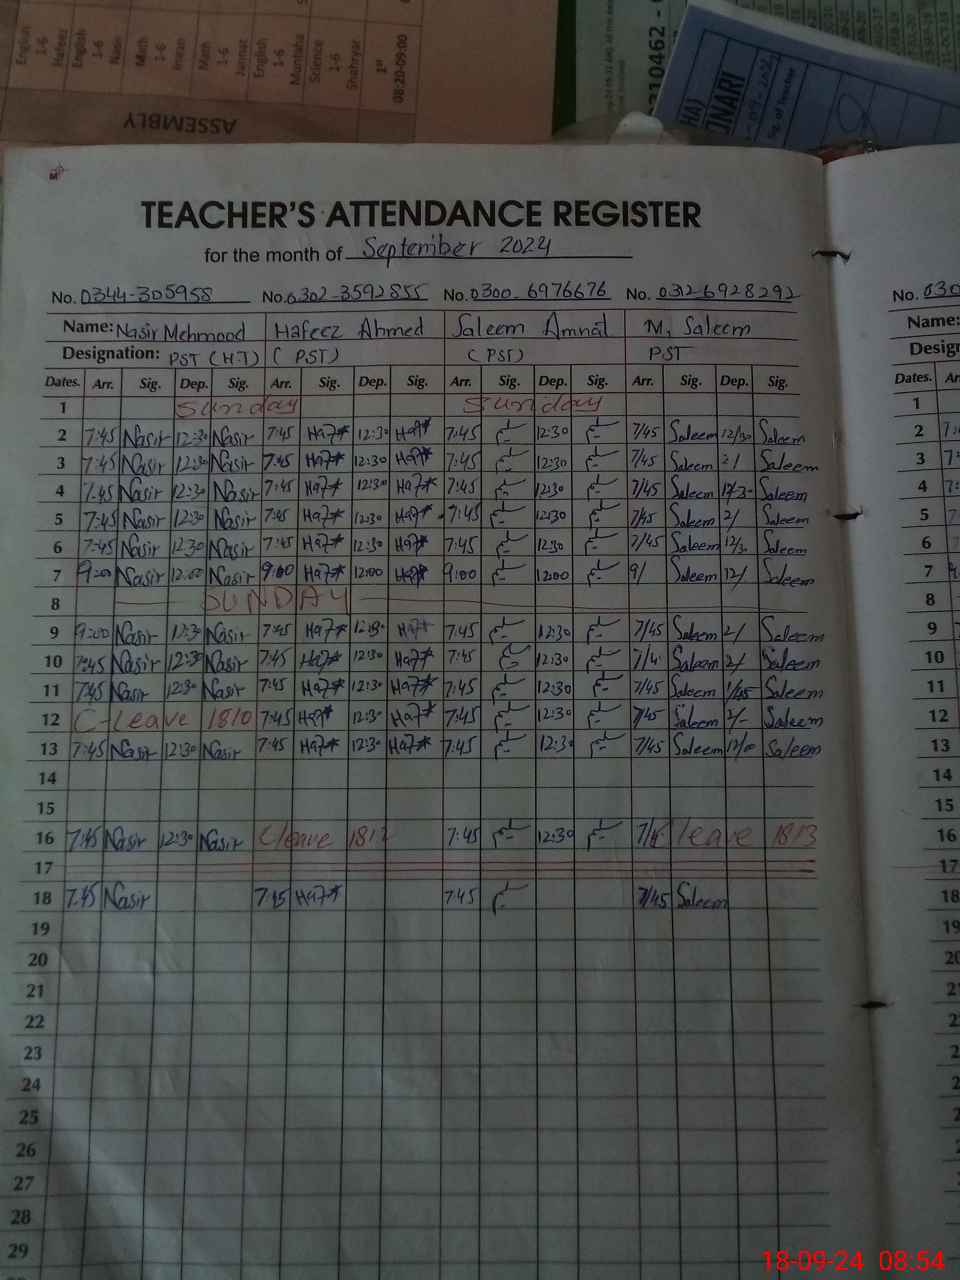 English 1-6 Hafeez
English 1-6 Nasir
Math 1-6 Imran
Math 1-6 Jannat
English 1-6 Muntaha
Science 1-6 Shahryar
1st 08:20-09:00
ASSEMBLY
310462 -
HAJ
ONARI
Sig. of Teacher
TEACHER'S ATTENDANCE REGISTER
for the month of September 2024
No. 0344-305958 No. 0302-3592855 No. 0300-6976676 No. 0312-6928292 No. 030
Name: Nasir Mehmood Hafeez Ahmed Saleem Amnat M. Saleem Name:
Designation: PST (H.T) (PST) (PST) PST Design
Dates. Arr. Sig. Dep. Sig. Arr. Sig. Dep. Sig. Arr. Sig. Dep. Sig. Arr. Sig. Dep. Sig. Dates. Ar
1 Sunday Sunday 1
2 7:45 Nasir 12:30 Nasir 7:45 12:30 7:45 12:30 7/45 Saleem 12/30 Saleem 2
3 7:45 Nasir 12:30 Nasir 7:45 12:30 7:45 12:30 7/45 Saleem 2/ Saleem 3
4 7:45 Nasir 12:30 Nasir 7:45 12:30 7:45 12:30 7/45 Saleem Saleem 4
5 7:45 Nasir 12:30 Nasir 7:45 12:30 7:45 12:30 7/45 Saleem 2/ Saleem 5
6 7:45 Nasir 12:30 Nasir 7:45 12:30 7:45 12:30 7/45 Saleem 12/3. Saleem 6
7 9:00 Nasir 12:00 Nasir 9:00 12:00 9:00 12:00 9/ Saleem 12/ Saleem 7
8 SUNDAY 8
9 9:00 Nasir 12:30 Nasir 7:45 12:30 7:45 12:30 7/45 Saleem 2/ Saleem 9
10 7:45 Nasir 12:30 Nasir 7:45 12:30 7:45 12:30 7/4 Saleem 2/ Saleem 10
11 7:45 Nasir 12:30 Nasir 7:45 12:30 7:45 12:30 7/45 Saleem Saleem 11
12 C-leave 1810 7:45 12:30 7:45 12:30 7/45 Saleem 2/- Saleem 12
13 7:45 Nasir 12:30 Nasir 7:45 12:30 7:45 12:30 7/45 Saleem Saleem 13
14 14
15 15
16 7:45 Nasir 12:30 Nasir C leave 7:45 12:30 leave 1813 16
17 17
18 7:45 Nasir 7:45 7:45 7/45 Saleem 18
19 19
20
21
22
23
24
25
26
27
28
29
18-09-24 08:54